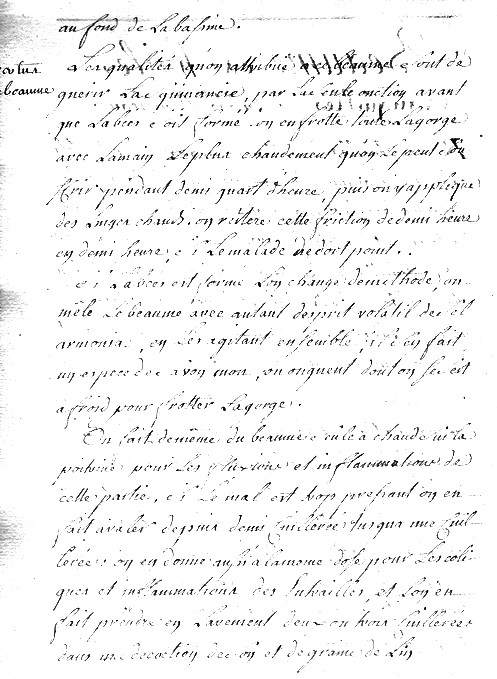 au fond de La bassine.
vertus
beaume
Les qualités quon attribue a ce beaume sont de
guerir La Squinancie, par La seule onction avant
que Labces soit formé. on en frotte toute Lagorge
avec Lamain Leplus chaudement quon Le peut
pendant demis quart dheure, puis on y applique
des Linges chauds. on réitere cette friction de demi heure
en demi heure, si Le malade ne dort point.
si Labces est formé Lon change demethode, on
mêle Le beaume avec autant desprit volatil de sel
armoniac, en Les agitant ensemble, il sen fait
un espece de savon mou, ou onguent dont on se sert
a froid pour frotter Lagorge.
On fait demême du beaume seule a chaud sur la
poitrine pour Les fluxions et inflammations de
cette partie, si Le mal est trop pressant on en
fait avaler depuis demis Cuillerée Jusqua une Cuil-
lerée: on en donne aussi alameme dose pour Lescoli-
ques et inflammations des Entrailles, et Lon en
fait prendre en Lavement deux ou trois Cuillerées
dans une decoction de son et de graine de Lin